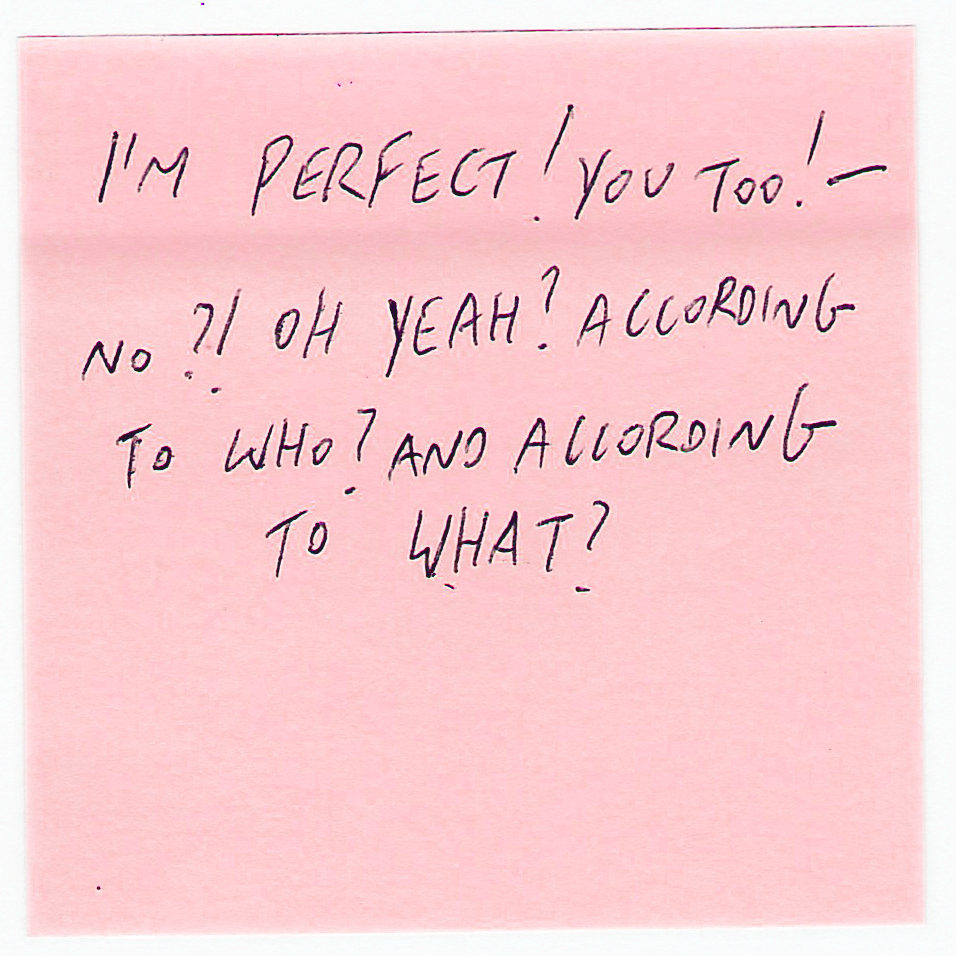 I'M PERFECT! YOU TOO! —
NO?! OH YEAH? ACCORDING
TO WHO? AND ACCORDING
TO WHAT?